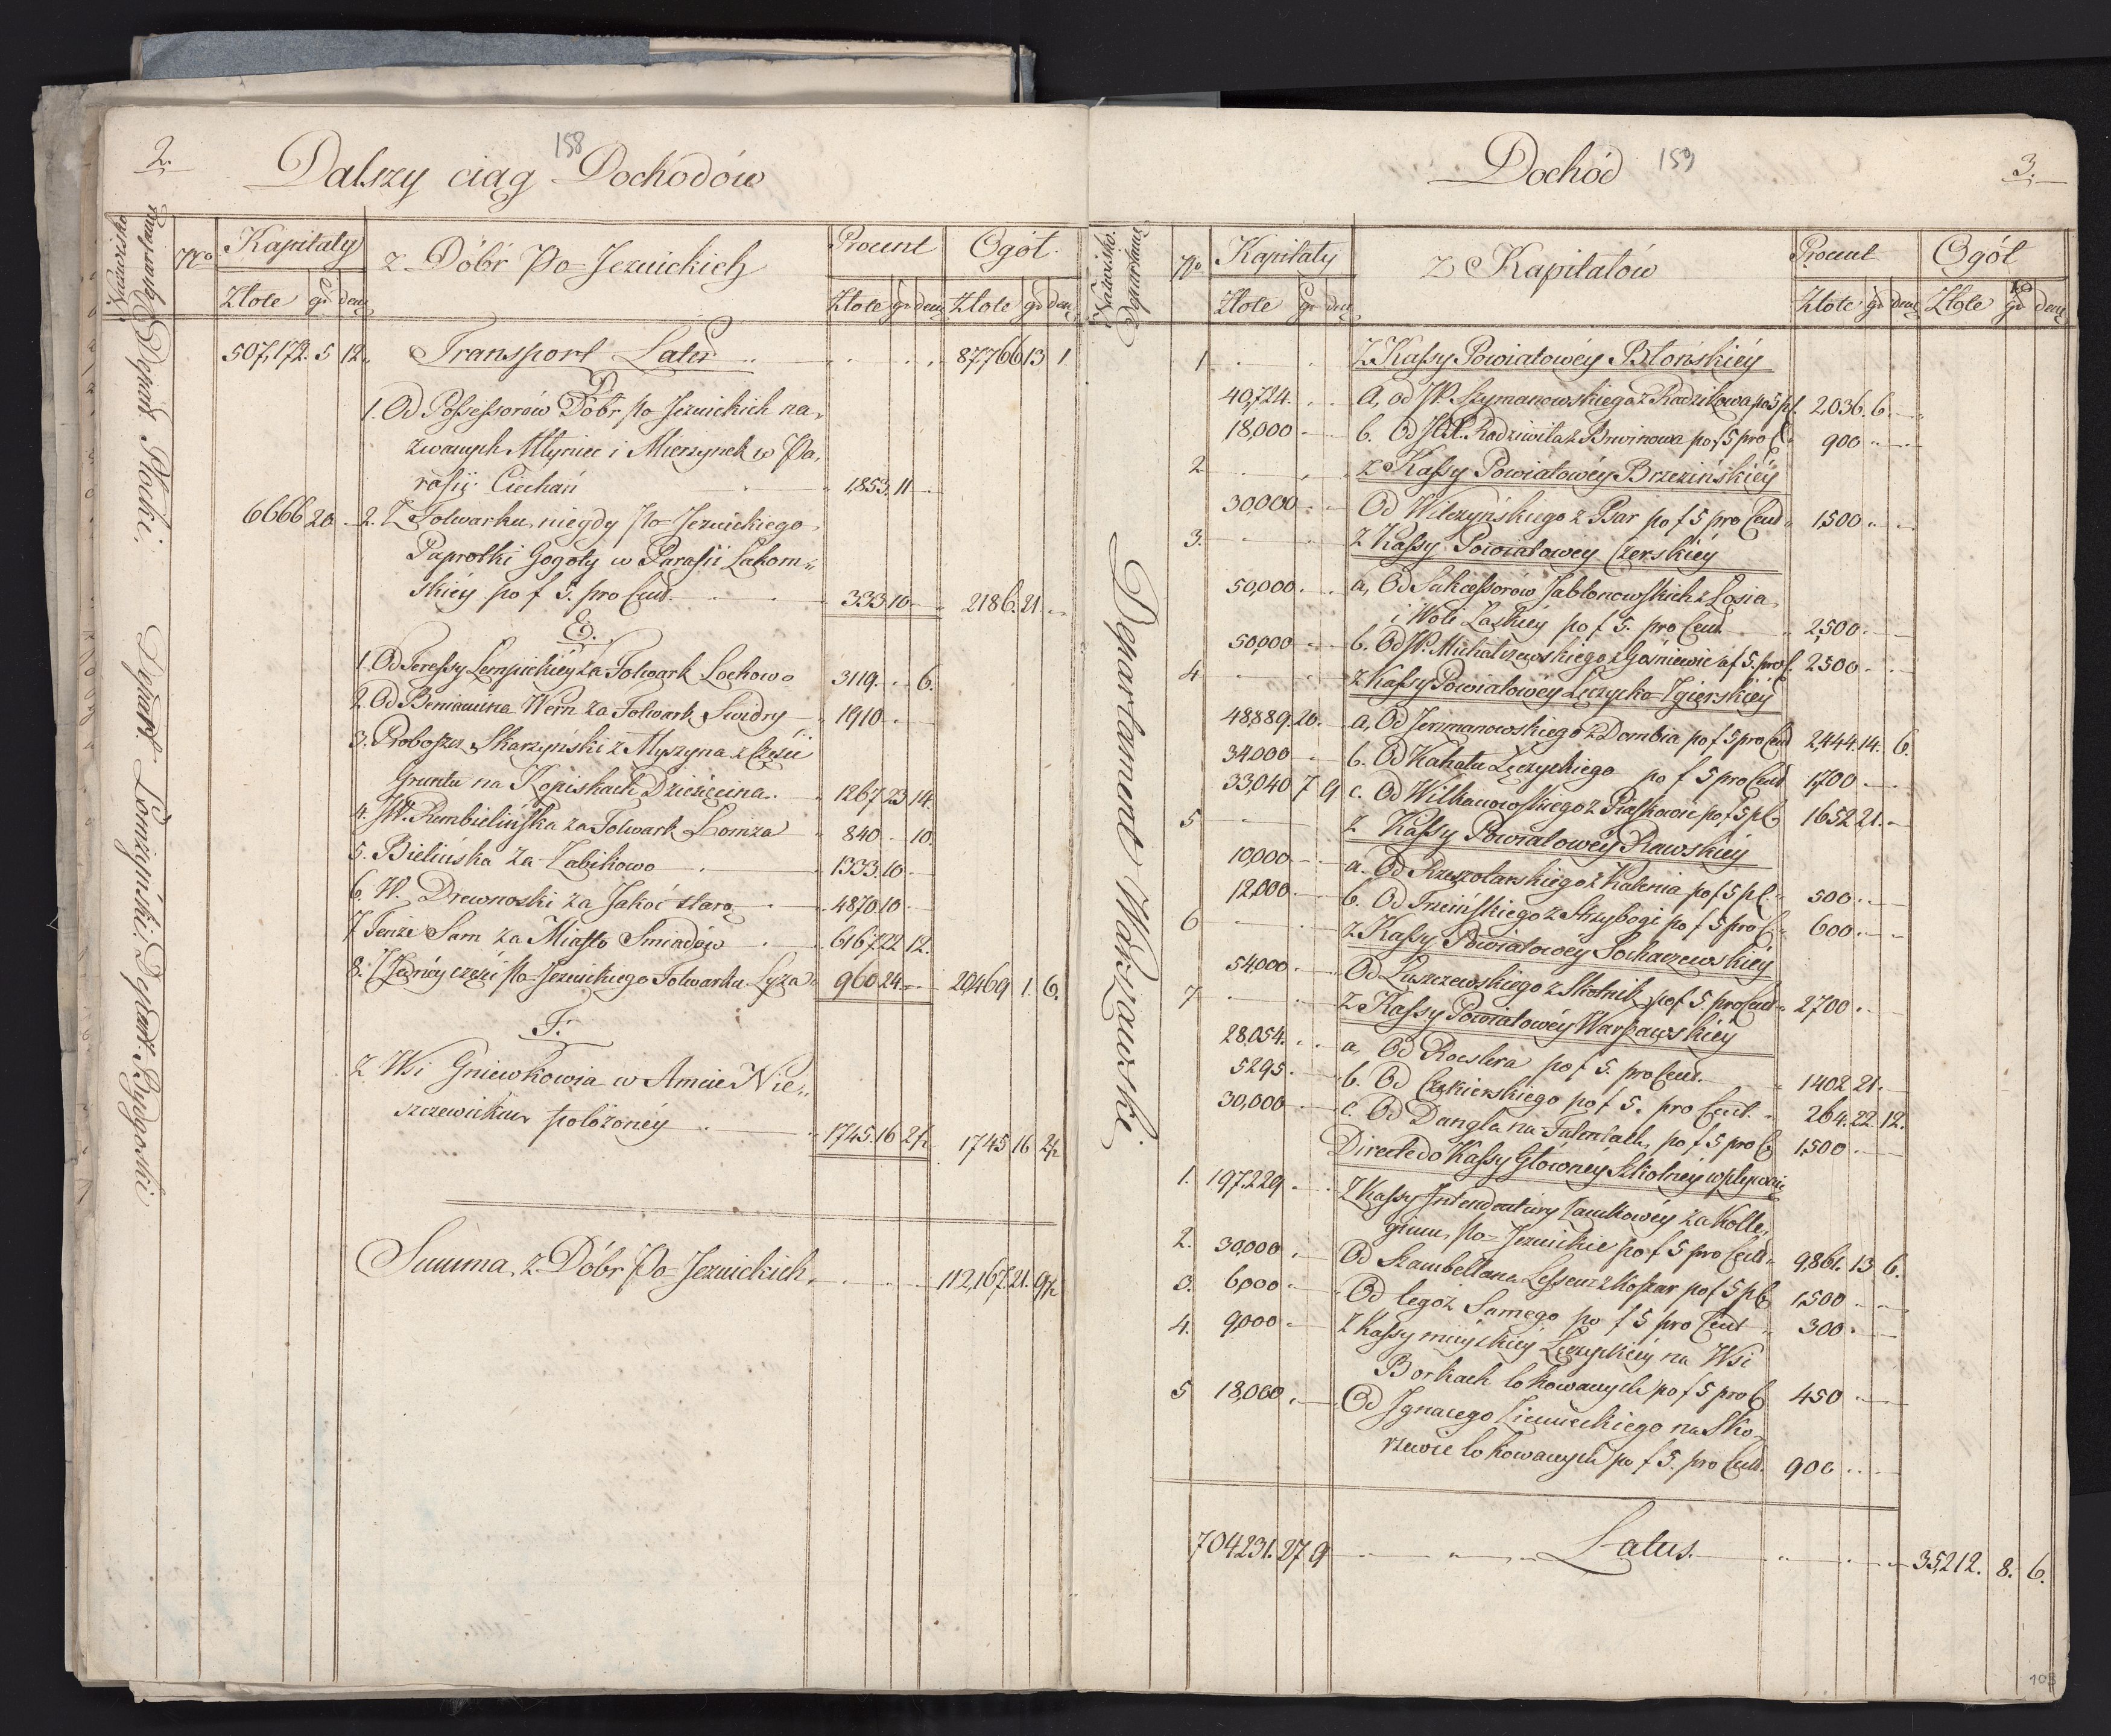 2.
158
Dalszy ciąg Dochodów
Nazwisko Departamen:
No
Kapitały
z Dóbr Po-Jezuickich
Procent
Ogół.
Złote gr den
Złote gr den Złote gr den
507,172. 5 12. Transport Later 87,766 13 1.
D.
1. Od Possessorów Dóbr po Jezuickich na,
zwanych Młyniec i Mierzynek w Pa,
rafij Ciechań 1,853. 11
6666 20. 2. Z Folwarku niegdy Po-Jezuickiego
Paprotki Gogoły w Parafii Łakom=
skiéy po f 5. pro Cent. 333 10 2186. 21.
E.
1. Od Teressy Lempickiéy za Folwark Łochowo 3119. 6.
2. Od Beniamina Wern za Folwark Swidry 1910
3. Proboszcz Skarzyński z Myszyna z Części
Gruntu na Kopiskach Dziesięcina. 1267 23 14.
4. JW. Rembielińska za Folwark Łomza 840 10.
5. Bielińska za Zabikowo 1333. 10
6. W. Drewnoski za Jakać starą 4870 10
7 Tenże Sam za Miasto Sniadów 6167 22 12.
8. Z Jedney części Po-Jezuickiego Folwarku Łyza 960 24 20,469 1. 6.
F.
Z Wsi Gniewkowia w Amcie Nie=
szewickim położonéy 1745. 16 2½ 1745 16 2½
Summa z Dóbr Po-Jezuickich 112,167. 21. 9½
Depart: Płocki.
Depart: Łomżyński
Depart: Bydgoski
Dochód
159
3.
Nazwisko. Departamen:
No
Kapitały
Z Kapitałów
Procent
Ogół
Złote gr den
Złote gr den Złote gr den
1 Z Kassy Powiatowéy Błońskiéy
40,724. a, od JW. Szymanowskiego z Radzikowa po 5 p C. 2,036. 6
18,000 b. Od JO. X. Radziwiła z Brwinowa po f 5 pro C 900
2 z Kassy Powiatowéy Brzezińskiéy
30,000 Od Wilczyńskiego z Psar po f 5 pro Cent 1,500
3. z Kassy Powiatowéy Czerskiéy
50,000 a, Od Sukcessorów Jabłonowskich z Łosia
i Woli Łaskiéy po f 5. pro Cent. 2,500
50,000 b. Od W. Michalczewskiego z Gośniewic a f 5. pro C. 2,500
4 z Kassy Powiatowéy Łęczycko-Zgierskiéy
48,889. 20. a, Od Jerzmanowskiego z Dombia po f 5 pro Cent 2,444. 14. 6.
34,000 b. Od Kahału Łęczyckiego po f 5 pro Cent 1,700
33,040 7 9 c. Od Wilkanowskiego z Piaskowic po f 5 p C 1652 21.
5 z Kassy Powiatowéy Rawskiéy
10,000 a. Od Rzeszotarskiego z Kalenia po f 5 p C. 500
12,000 b. Od Trzcińskiego z Strzybogi po f 5 pro C 600
6 z Kassy Powiatowéy Sochaczewskiéy
54,000 Od Łuszczewskiego z Skotnik po f 5 pro Cent 2700
7 z Kassy Powiatowéy Warszawskiéy
28,054. a, Od Roeslera po f 5. pro Cent. 1402 21.
5295. b. Od Czekierskiego po f 5. pro Cent. 264. 22. 12.
30,000 c. Od Dangla na Tulentach, po f 5 pro C 1,500
Directe do Kassy Głównéy Szkolnéy wpływaią
1. 197,229 Z Kassy Intendentury Zamkowéy za Kolle,
gium Po-Jezuickie po f 5 pro Cent 9,861. 13 6.
2. 30,000 Od Szambellana Lesseur z Koszar po f 5 p C 1,500
3. 6,000 Od tegoż Samego po f 5 pro Cent 300
4. 9,000 z Kassy mieyskiéy Łęczyckiéy na Wsi
Borkach lokowanych po f 5 pro C 450
5 18,000 Od Ignacego Ziemieckiego na Sko,
rzewie lokowanych po f 5. pro Cent. 900
704,231. 27 9 Latus. 35,212. 8. 6.
Departament Warszawski
103